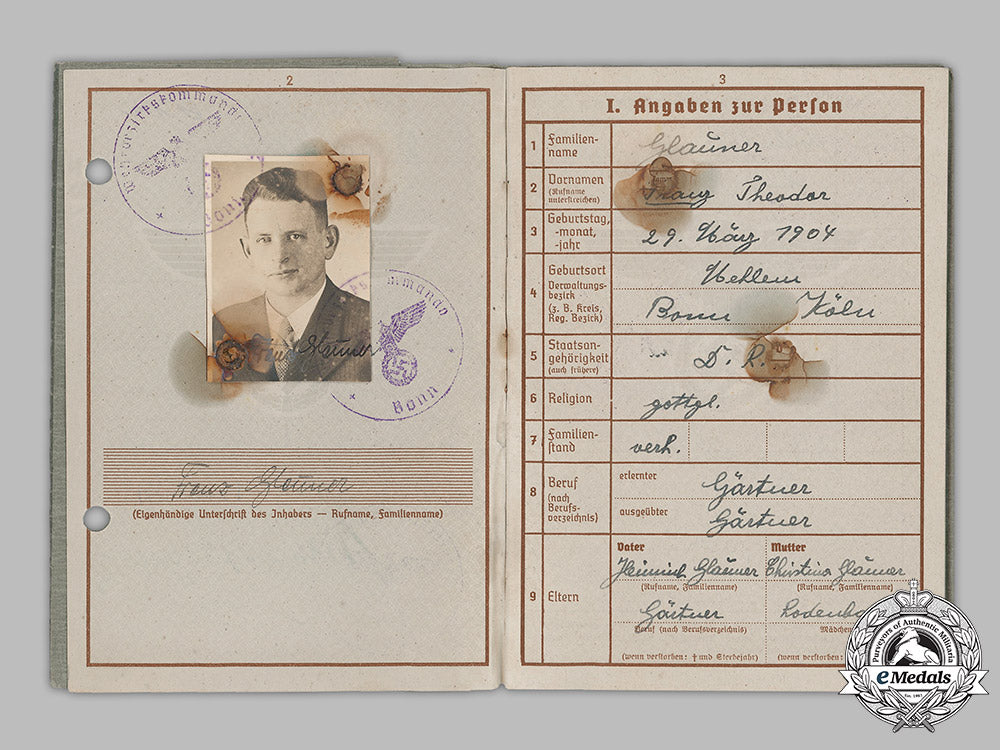 2
Wehrbezirkskommando
Bonn
kommando
Bonn
Franz Glauner
Franz Glauner
(Eigenhändige Unterschrift des Inhabers — Rufname, Familienname)
3
I. Angaben zur Person
1 Familien-
name
Glauner
2 Vornamen
(Rufname
unterstreichen)
Franz Theodor
3 Geburtstag,
-monat,
-jahr
29. März 1904
4 Geburtsort
Verwaltungs-
bezirk
(z. B. Kreis,
Reg. Bezirk)
Mehlem
Bonn Köln
5 Staatsan-
gehörigkeit
(auch frühere)
D. R.
6 Religion
gottgl.
7 Familien-
stand
verh.
8 Beruf
(nach
Berufs-
verzeichnis)
erlernter
Gärtner
ausgeübter
Gärtner
9 Eltern
Vater Mutter
Heinrich Glauner Christina Glauner
(Rufname, Familienname) (Rufname, Familienname)
Gärtner
Beruf (nach Berufsverzeichnis) Mädchen
(wenn verstorben: † und Sterbejahr) (wenn verstorben:
Purveyors of Authentic Militaria
eMedals
Est. 1967